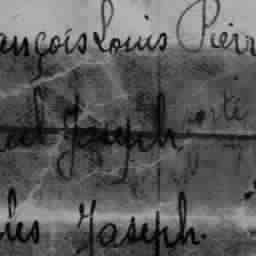 ançois Louis Pierr
Joseph
les Joseph.